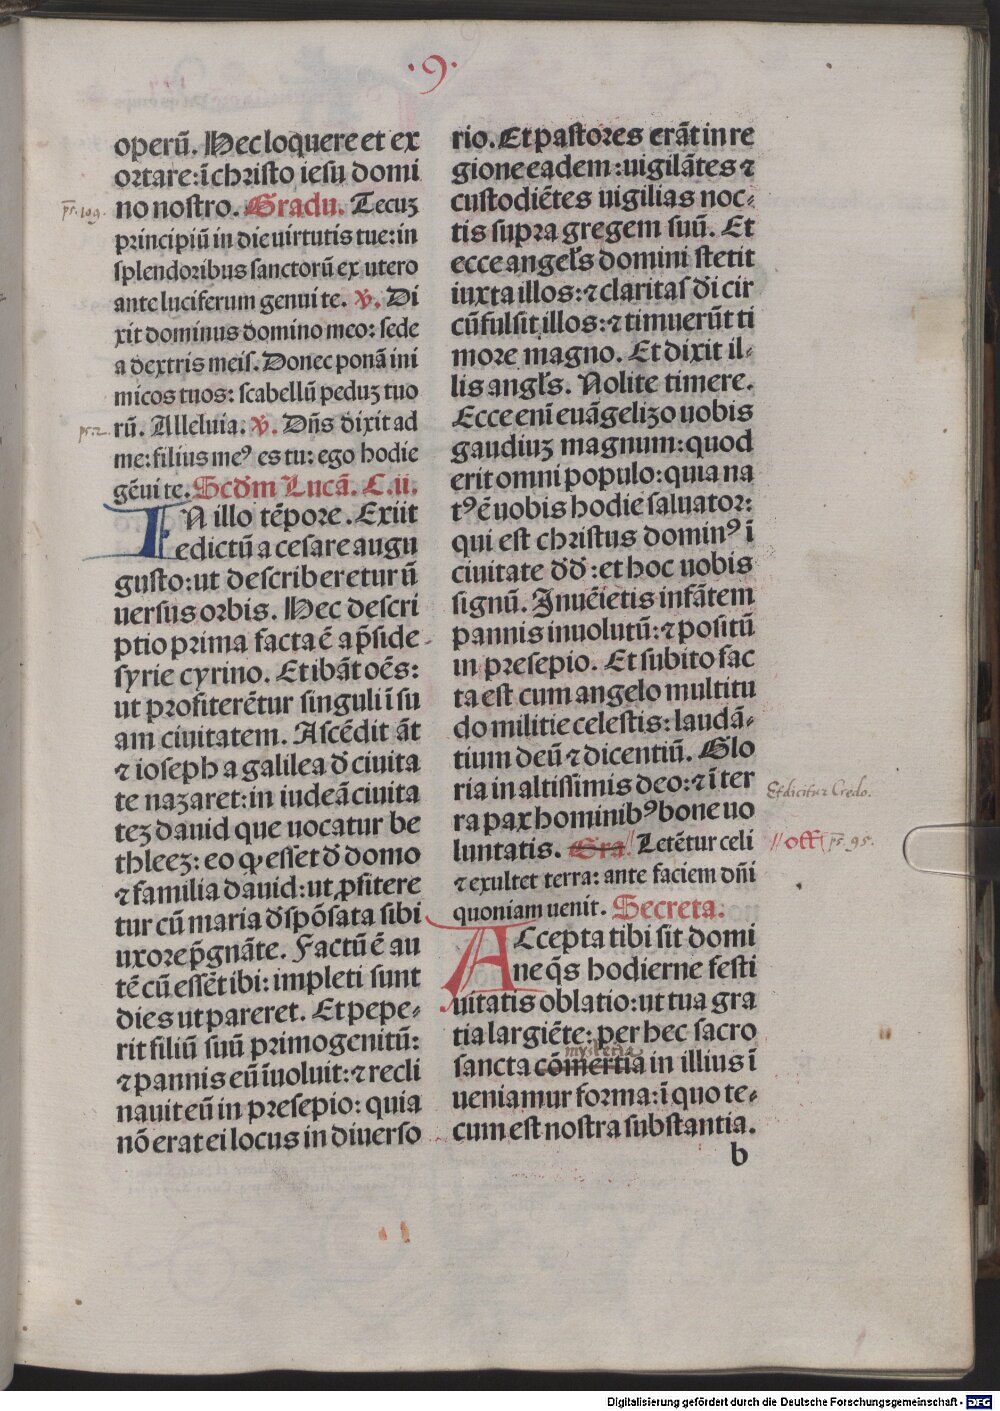 ·9·
operū. Hec loquere et ex
ortare: ī christo iesu domi
no nostro. Gradu. Tecuʒ
ps. 109.
principiū in die uirtutis tue: in
splendoribus sanctorū ex utero
ante luciferum genui te. ℣. Di
xit dominus domino meo: sede
a dextris meis. Donec ponā ini
micos tuos: scabellū peduʒ tuo
rū. Alleluia. ℣. Dn̄s dixit ad
ps. 2.
me: filius meꝰ es tu: ego hodie
gēui te. Scd̄m Lucā. C. ii.
IN illo tēpore. Exiit
edictū a cesare augu
gusto: ut describeretur ū
uersus orbis. Hec descri
ptio prima facta ē a p̄side
syrie cyrino. Et ibāt oēs:
ut profiterētur singuli ī su
am ciuitatem. Ascēdit āt
⁊ ioseph a galilea d̄ ciuita
te nazaret: in iudeā ciuita
teʒ dauid que uocatur be
thleeʒ: eo ꝙ esset d̄ domo
⁊ familia dauid: ut ꝓfitere
tur cū maria d̄spōsata sibi
uxore p̄gnāte. Factū ē au
tē cū essēt ibi: impleti sunt
dies ut pareret. Et pepe-
rit filiū suū primogenitū:
⁊ pannis eū īuoluit: ⁊ recli
nauit eū in presepio: quia
nō erat ei locus in diuerso
rio. Et pastores erāt in re
gione eadem: uigilātes ⁊
custodiētes uigilias noc-
tis supra gregem suū. Et
ecce angel's domini stetit
iuxta illos: ⁊ claritas d̄i cir
cūfulsit illos: ⁊ timuerūt ti
more magno. Et dixit il-
lis angl's. Nolite timere.
Ecce enī euāgelizo uobis
gaudiuʒ magnum: quod
erit omni populo: quia na
tꝰ ē uobis hodie saluator:
qui est christus dominꝰ ī
ciuitate dd̄: et hoc uobis
signū. Inuēietis infātem
pannis inuolutū: ⁊ positū
in presepio. Et subito fac
ta est cum angelo multitu
do militie celestis: laudā-
tium deū ⁊ dicentiū. Glo
ria in altissimis deo: ⁊ ī ter
Et dicitur Credo.
ra pax hominibꝰ bone uo
luntatis. Gra // Letētur celi
// off ps. 95.
⁊ exultet terra: ante faciem dn̄i
quoniam uenit. Secreta.
ACcepta tibi sit domi
ne q̄s hodierne festi
uitatis oblatio: ut tua gra
tia largiēte: per hec sacro
mysteria
sancta cōmertia in illius ī
ueniamur forma: ī quo te-
cum est nostra substantia.
b
Digitalisierung gefördert durch die Deutsche Forschungsgemeinschaft - DFG